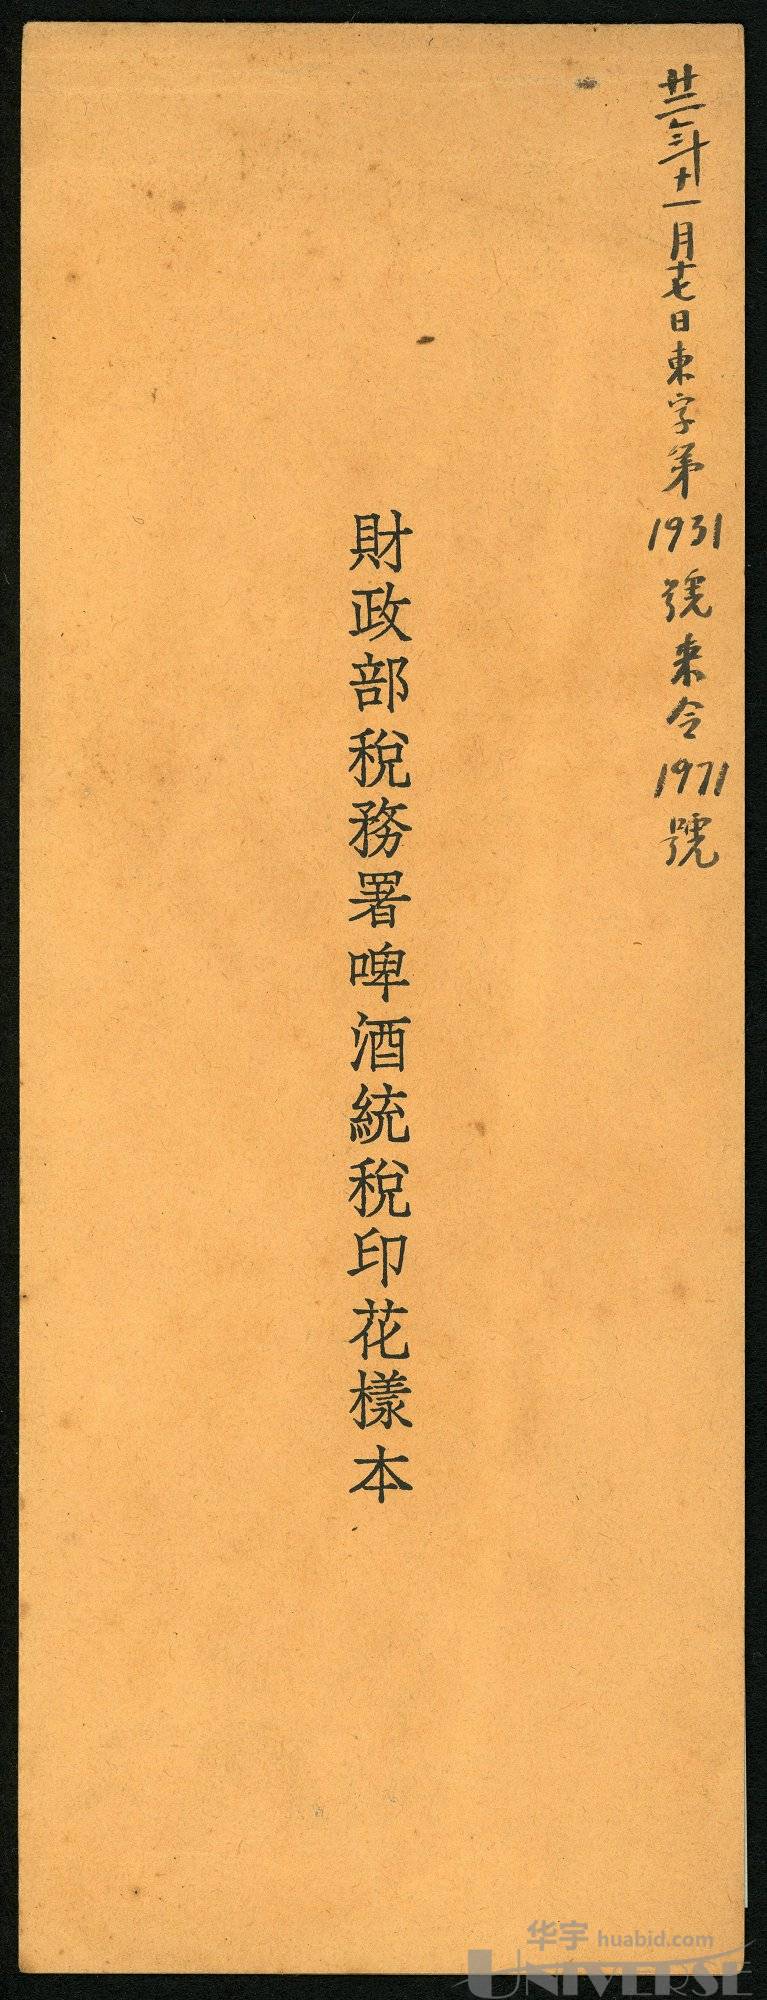 廿二年十一月十七日東字第1931號來令1971號
財政部稅務署啤酒統稅印花樣本
华宇 huabid.com
UNIVERSE